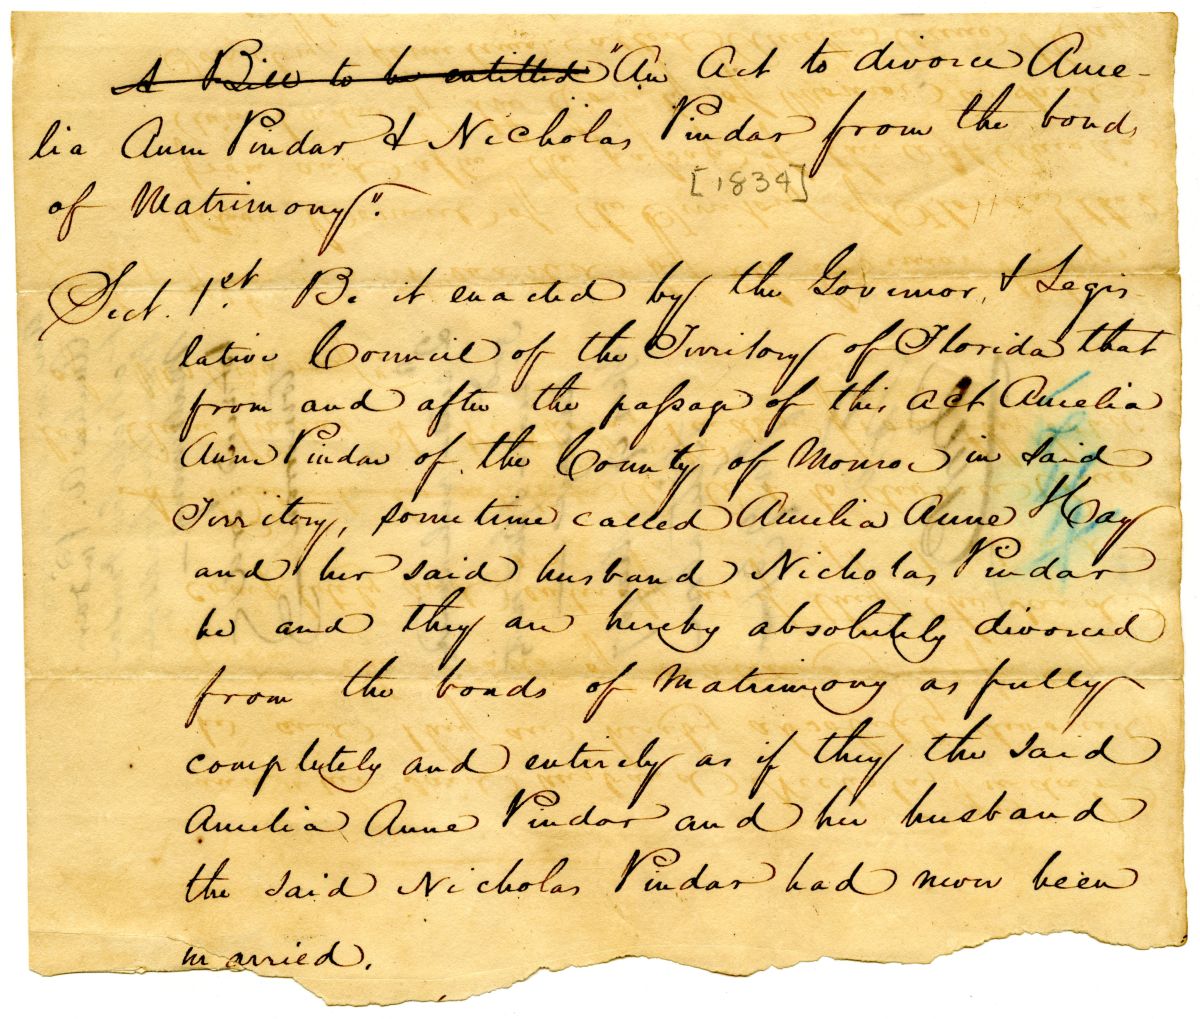 A Bill to be entitled "An Act to divorce Ame-
lia Ann Pindar & Nicholas Pindar from the bonds
[1834]
of Matrimony".
Sect. 1st. Be it enacted by the Governor, & Legis
lative Council of the Territory of Florida that
from and after the passage of this act Amelia
Ann Pindar of the County of Monroe in said
Territory, sometime called Amelia Anne Hay
and her said husband Nicholas Pindar
be and they are hereby absolutely divorced
from the bonds of Matrimony as fully
completely and entirely as if they the said
Amelia Anne Pindar and her husband
the said Nicholas Pindar had never been
married.